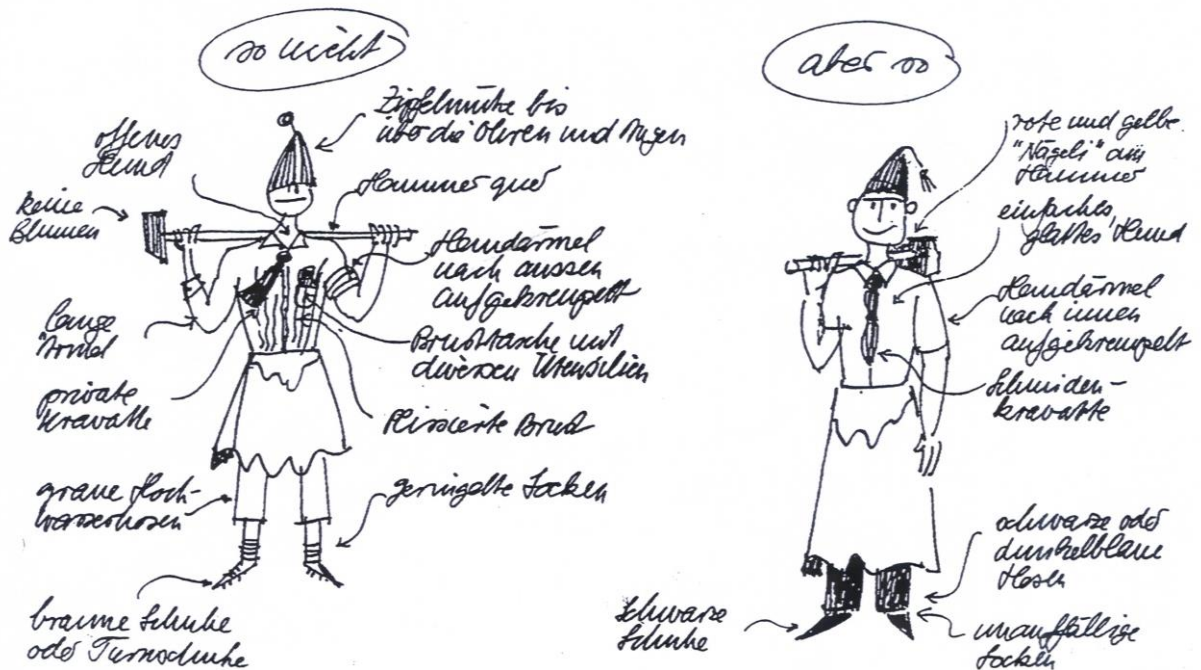 so nicht
Zipfelmütze bis
über die Ohren und Augen
offenes
Hemd
Hammer quer
keine
Blumen
Hemdärmel
nach aussen
aufgekrempelt
lange
Ärmel
Brusttasche mit
diversen Utensilien
private
Kravatte
Plissierte Brust
graue Hoch-
wasserhosen
geringelte Socken
braune Schuhe
oder Turnschuhe
aber so
rote und gelbe
"Nägeli" am
Hammer
einfaches,
glattes Hemd
Hemdärmel
nach innen
aufgekrempelt
Schmiden-
kravatte
schwarze oder
dunkelblaue
Hosen
Schwarze
Schuhe
unauffällige
Socken